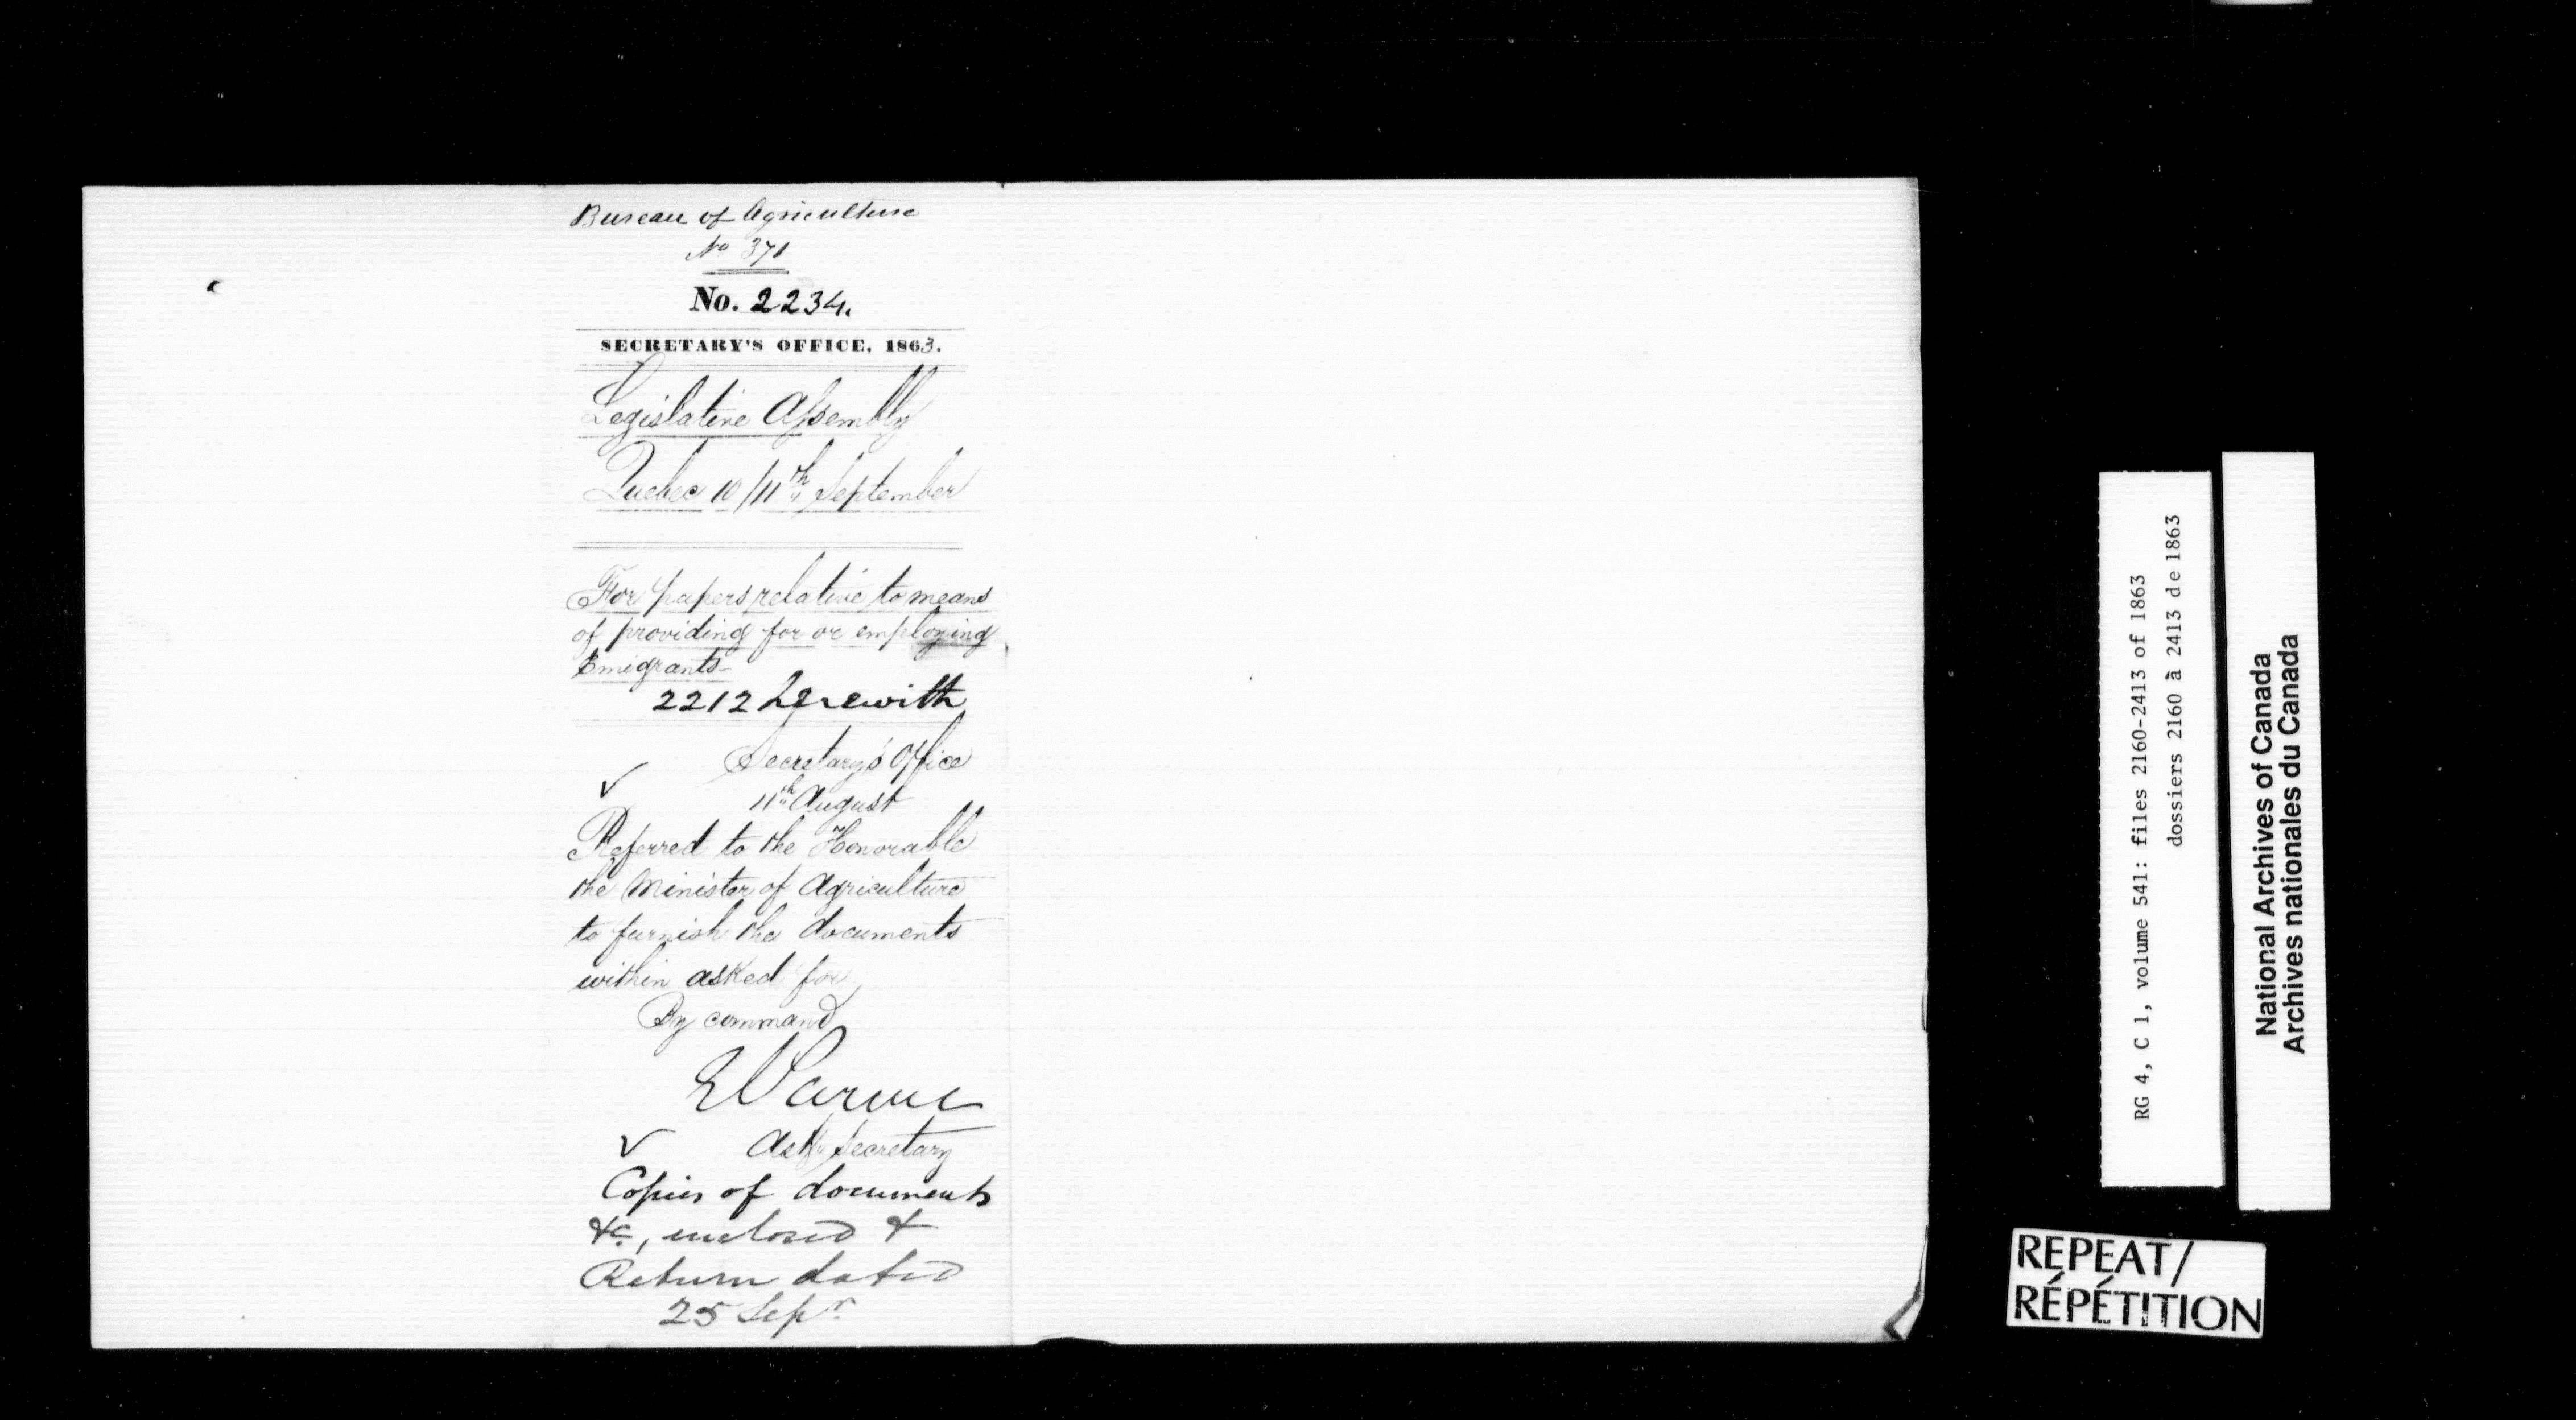 Bureau of Agriculture
No 371
No. 2234.
SECRETARY'S OFFICE, 1863.
Legislative Assembly
Quebec 10/11th September
For papers relative to means
of providing for or employing
Emigrants
2212 herewith
Secretary's Office
11th August
Referred to the Honorable
the Minister of Agriculture
to furnish the documents
within asked for
By command
E Parent
Asst Secretary
Copies of documents
&c, enclosed &
Return dated
25 Sepr.
RG 4, C 1, volume 541: files 2160-2413 of 1863
dossiers 2160 à 2413 de 1863
National Archives of Canada
Archives nationales du Canada
REPEAT/
RÉPÉTITION